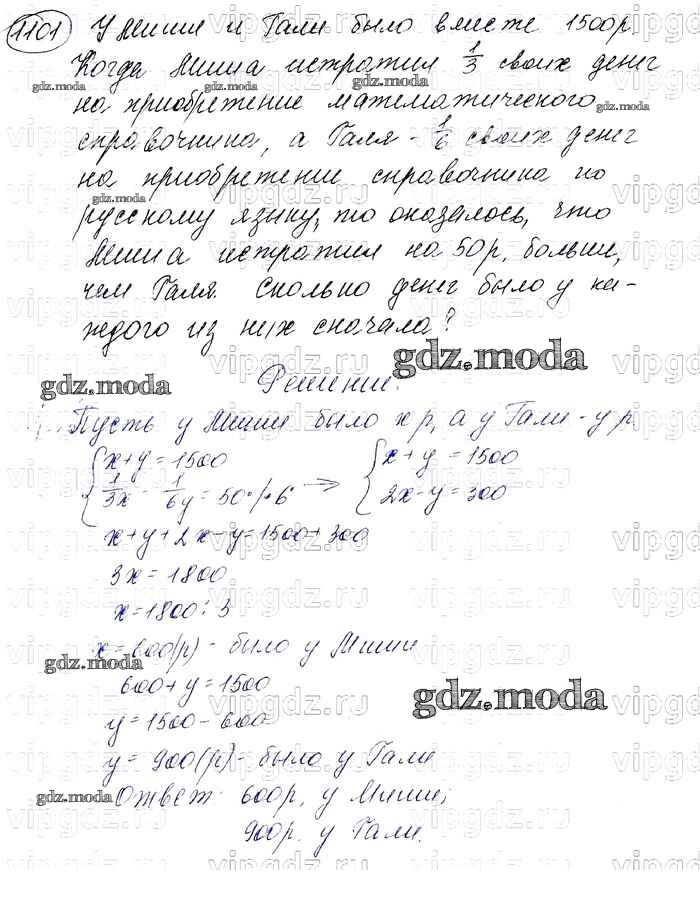 1101 У Миши и Гали было вместе 1500р.
Когда Миша истратил 1/3 своих денег
на приобретение математического
справочника, а Галя - 1/6 своих денег
на приобретение справочника по
русскому языку, то оказалось, что
Миша истратил на 50р. больше,
чем Галя. Сколько денег было у ка-
ждого из них сначала?
Решение.
Пусть у Миши было x р, а у Гали - y р.
{x+y=1500 {x+y=1500
{1/3x - 1/6y = 50 /·6 → {2x-y=300
x+y+2x-y=1500+300
3x=1800
x=1800:3
x=600(р) - было у Миши
600+y=1500
y=1500-600
y=900(р) - было у Гали
Ответ: 600р. у Миши;
900р. у Гали.
gdz.moda
vipgdz.ru